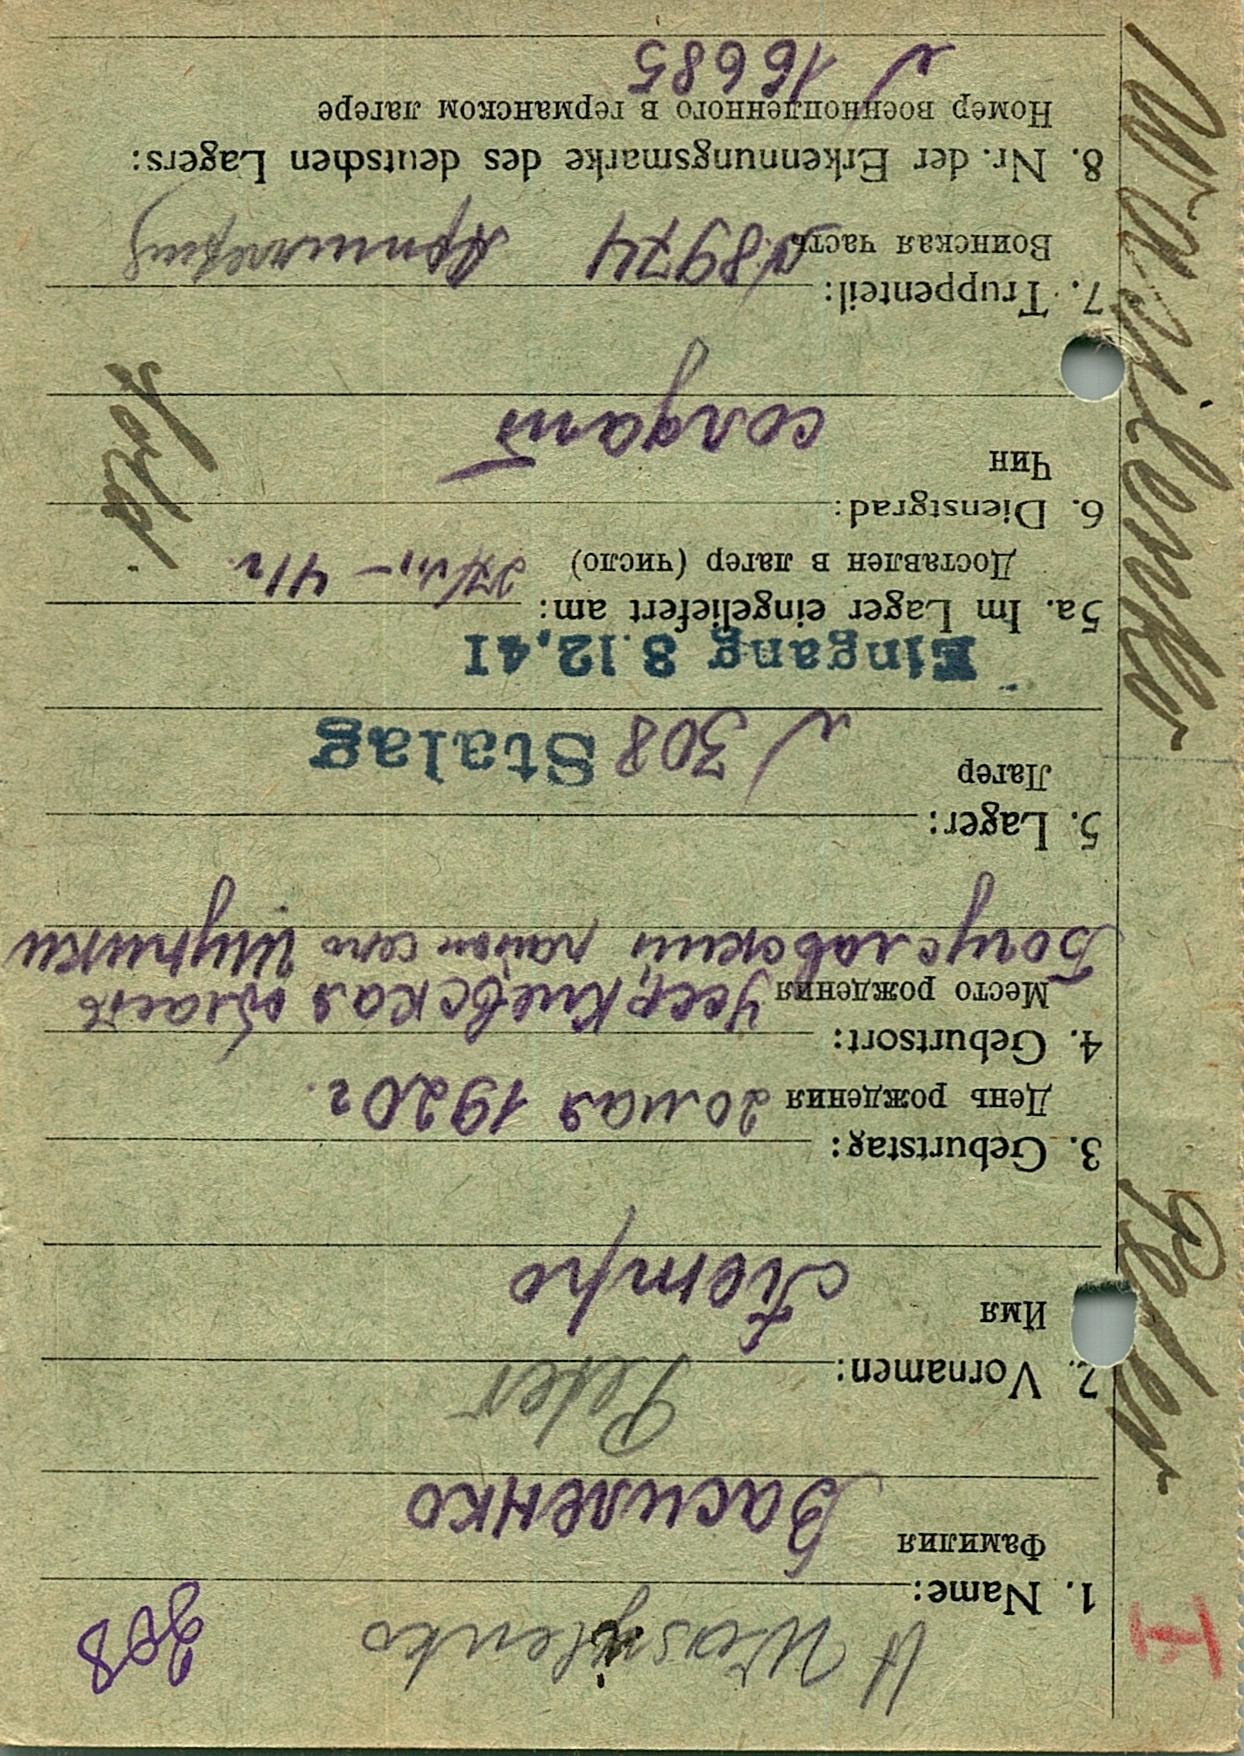 Wasilenko Peter
Wasylenko
308
1. Name:
Фамилия Василенко
Peter
2. Vornamen:
Имя Петро
3. Geburtstag:
День рождения 20 мая 1920 г.
4. Geburtsort:
Место рождения Усср, Киевская область
Богуславский район село Шупики
5. Lager:
Лагер № 308 Stalag
Eingang 8.12.41
5a. Im Lager eingeliefert am:
Доставлен в лагер (число) 27/VII – 41 г.
6. Dienstgrad:
Чин солдат
7. Truppenteil:
Воинская часть № 8974
8. Nr. der Erkennungsmarke des deutschen Lagers:
Номер военнопленного в германском лагере
№ 16685